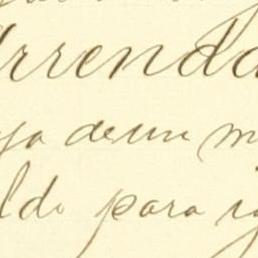 Arrenda
ya de un m
ldo para ig